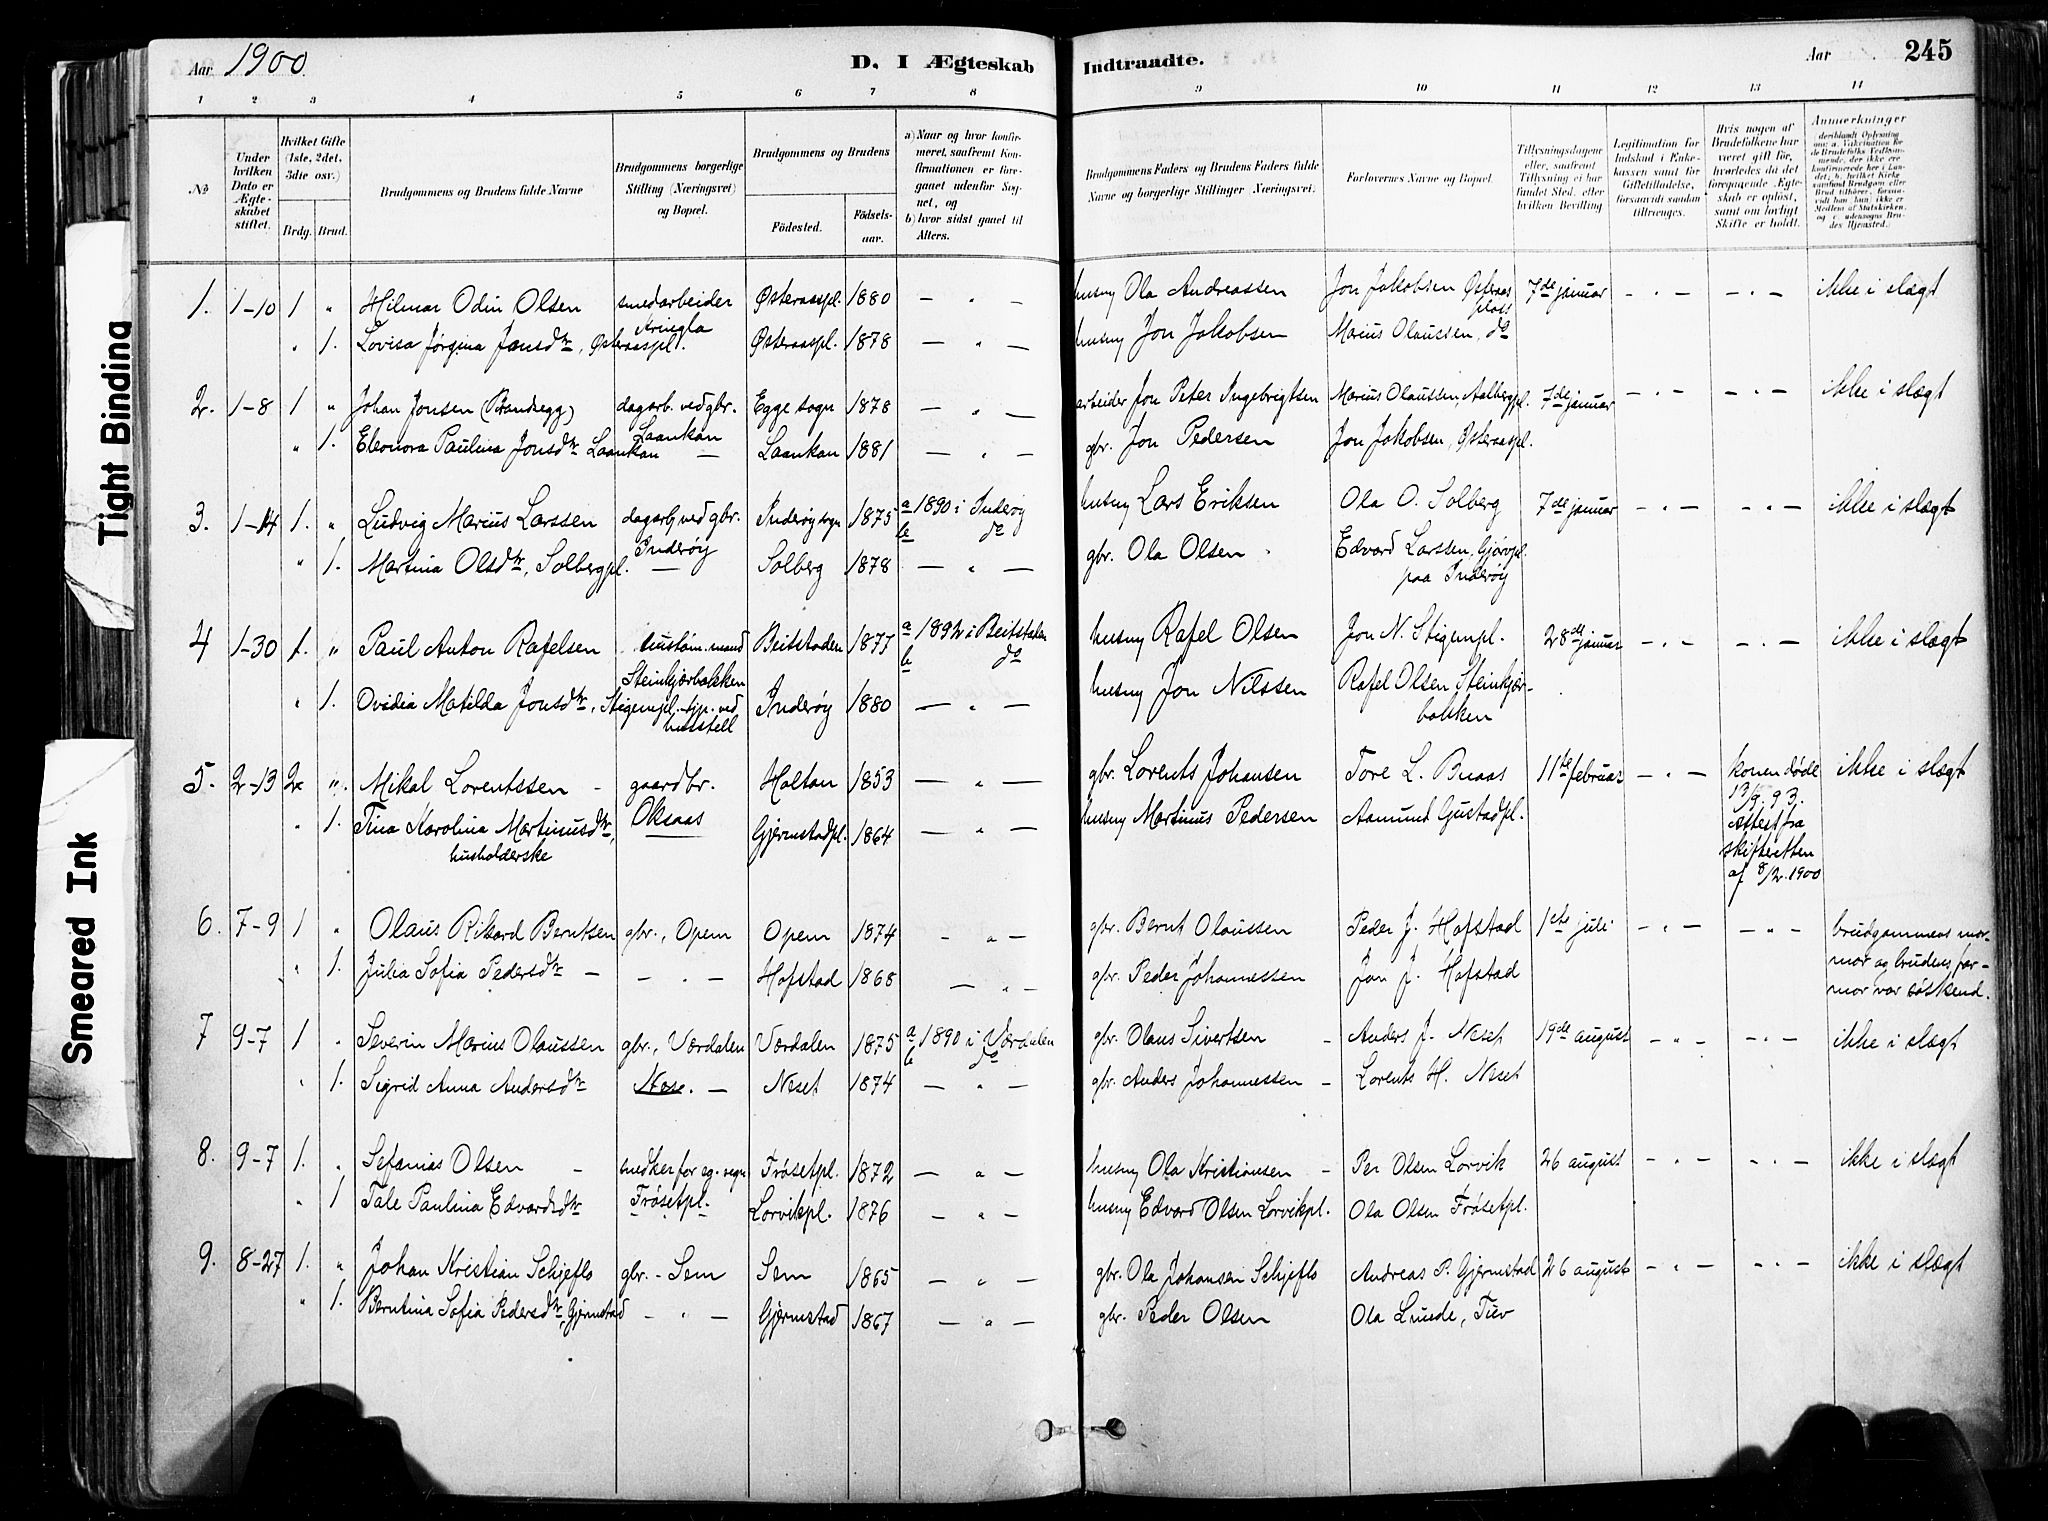 Aar 1900.
D. I Ægteskab Indtraadte.
Aar
245
1 2 3 4 5 6 7 8 9 10 11 12 13 14
No
Under hvilken Dato er Ægteskabet stiftet.
Hvilket Gifte (1ste, 2det, 3die osv.)
Brdg. Brud.
Brudgommens og Brudens fulde Navne
Brudgommens borgerlige Stilling (Næringsvei) og Bopæl.
Brudgommens og Brudens
Fødested.
Fødselsaar.
a) Naar og hvor konfirmeret, saafremt Konfirmationen er foregaaet udenfor Sognet, og
b) hvor sidst gaaet til Alters.
Brudgommens Faders og Brudens Faders fulde Navne og borgerlige Stillinger (Næringsvei).
Forlovernes Navne og Bopæl.
Tillysningsdagene eller, saafremt Tillysning ei har fundet Sted, efter hvilken Bevilling
Legitimation for Indskud i Enkekassen samt for Giftetilladelse, forsaavidt saadan tiltrænges.
Hvis nogen af Brudefolkene har været gift før, hvorledes da det foregaaende Ægteskab er opløst, samt om lovligt Skifte er holdt.
Anmærkninger
1. 1-10 1 " Hilmar Odin Olsen smedarbeider Østeraaspl. 1880 — " — husmg Ola Andreassen Jon Jakobsen Østeraas plass 7de januar — " — — " — ikke i slægt
" 1. Lovisa Jørgina Jonsdtr, Østeraaspl. Kringla Østeraaspl. 1878 — " — husmg Jon Jakobsen Marius Olaussen, do
2. 1-8 1 " Johan Jonsen (Brandsegg) dagarb. ved gbr. Egge sogn 1878 — " — arbeider Jon Peter Ingebrigtsen Marius Olaussen, Aalbergpl. 7de januar — " — — " — ikke i slægt
" 1. Eleonora Paulina Jonsdtr Laankan Laankan — Laankan 1881 — " — gbr. Jon Pedersen Jon Jakobsen, Østeraaspl.
3. 1-14 1. " Ludvig Marius Larssen dagarb ved gbr. Inderøy sogn 1875 a 1890 i Inderøy husmg Lars Eriksen Ola O. Solberg 7de januar — " — — " — ikke i slægt
Inderøy b do
" 1. Martina Olsdtr, Solbergpl. — Solberg 1878 — " — gbr. Ola Olsen Edvard Larssen, Gjørvpl. paa Inderøy
4 1-30 1. " Paul Anton Rafelsen Beitstaden 1877 a 1892 i Beitstaden husmg Rafel Olsen Jon N. Stigenpl. 28de januar — " — — " — ikke i slægt
Steinkjærbakken b do
" 1. Ovidia Matilda Jonsdtr, Stigenpl. tjp. ved husstell Inderøy 1880 — " — husmg Jon Nilssen Rafel Olsen Steinkjærbakken
5. 2-13 2. " Mikal Lorentssen gaardbr. Holtan 1853 — " — gbr. Lorents Johansen Tore L. Buaas 11te februar — " — konen døde 13/9. 93. Attest fra skifteretten af 8/2. 1900 ikke i slægt
" 1. Tina Karolina Martinusdtr, husholderske Oksaas Gjermstadpl. 1864 — " — husmg Martinus Pedersen Aamund Gustadpl.
6. 7-9 1 " Olaus Rikard Berntsen gbr., Opem Opem 1874 — " — gbr. Bernt Olaussen Peder J. Hofstad 1ste juli — " — — " — brudgommens mormor og brudens farmor var søskend.
" 1. Julia Sofia Pedersdtr — — " — Hofstad 1868 — " — gbr. Peder Johannessen Jon J. Hofstad
7 9-7 1 " Severin Marius Olaussen gbr., Værdalen Værdalen 1875 a 1890 i Værdalen b do gbr. Olaus Sivertsen — Anders J. Neset 19de august — " — — " — ikke i slægt
" 1. Sigrid Anna Andersdtr Nese. — Neset 1874 — " — gbr. Anders Johannessen — Lorents H. Neset
8. 9-7 1. " Sefanias Olsen — snedker for eg. regn Frøsetpl. 1872 — " — husmg Ola Kristiansen — Per Olsen Lorvik 26 august — " — — " — ikke i slægt
" 1 Tale Paulina Edvardsdtr Frøsetpl. Lorvikpl. 1876 — " — husmg Edvard Olsen Lorvikpl. Ola Olsen Frøsetpl.
9. 8-27 1. " Johan Kristian Schjeflo gbr. - Sem Sem 1865 — " — gbr. Ola Johansen Schjeflo Andreas P. Gjermstad 26 august — " — — " — ikke i slægt
" 1. Berntina Sofia Pedersdtr, Gjermstad — " — Gjermstad 1867 — " — gbr. Peder Olsen Ola Lunde, Tuv
Tight Binding
Smeared Ink